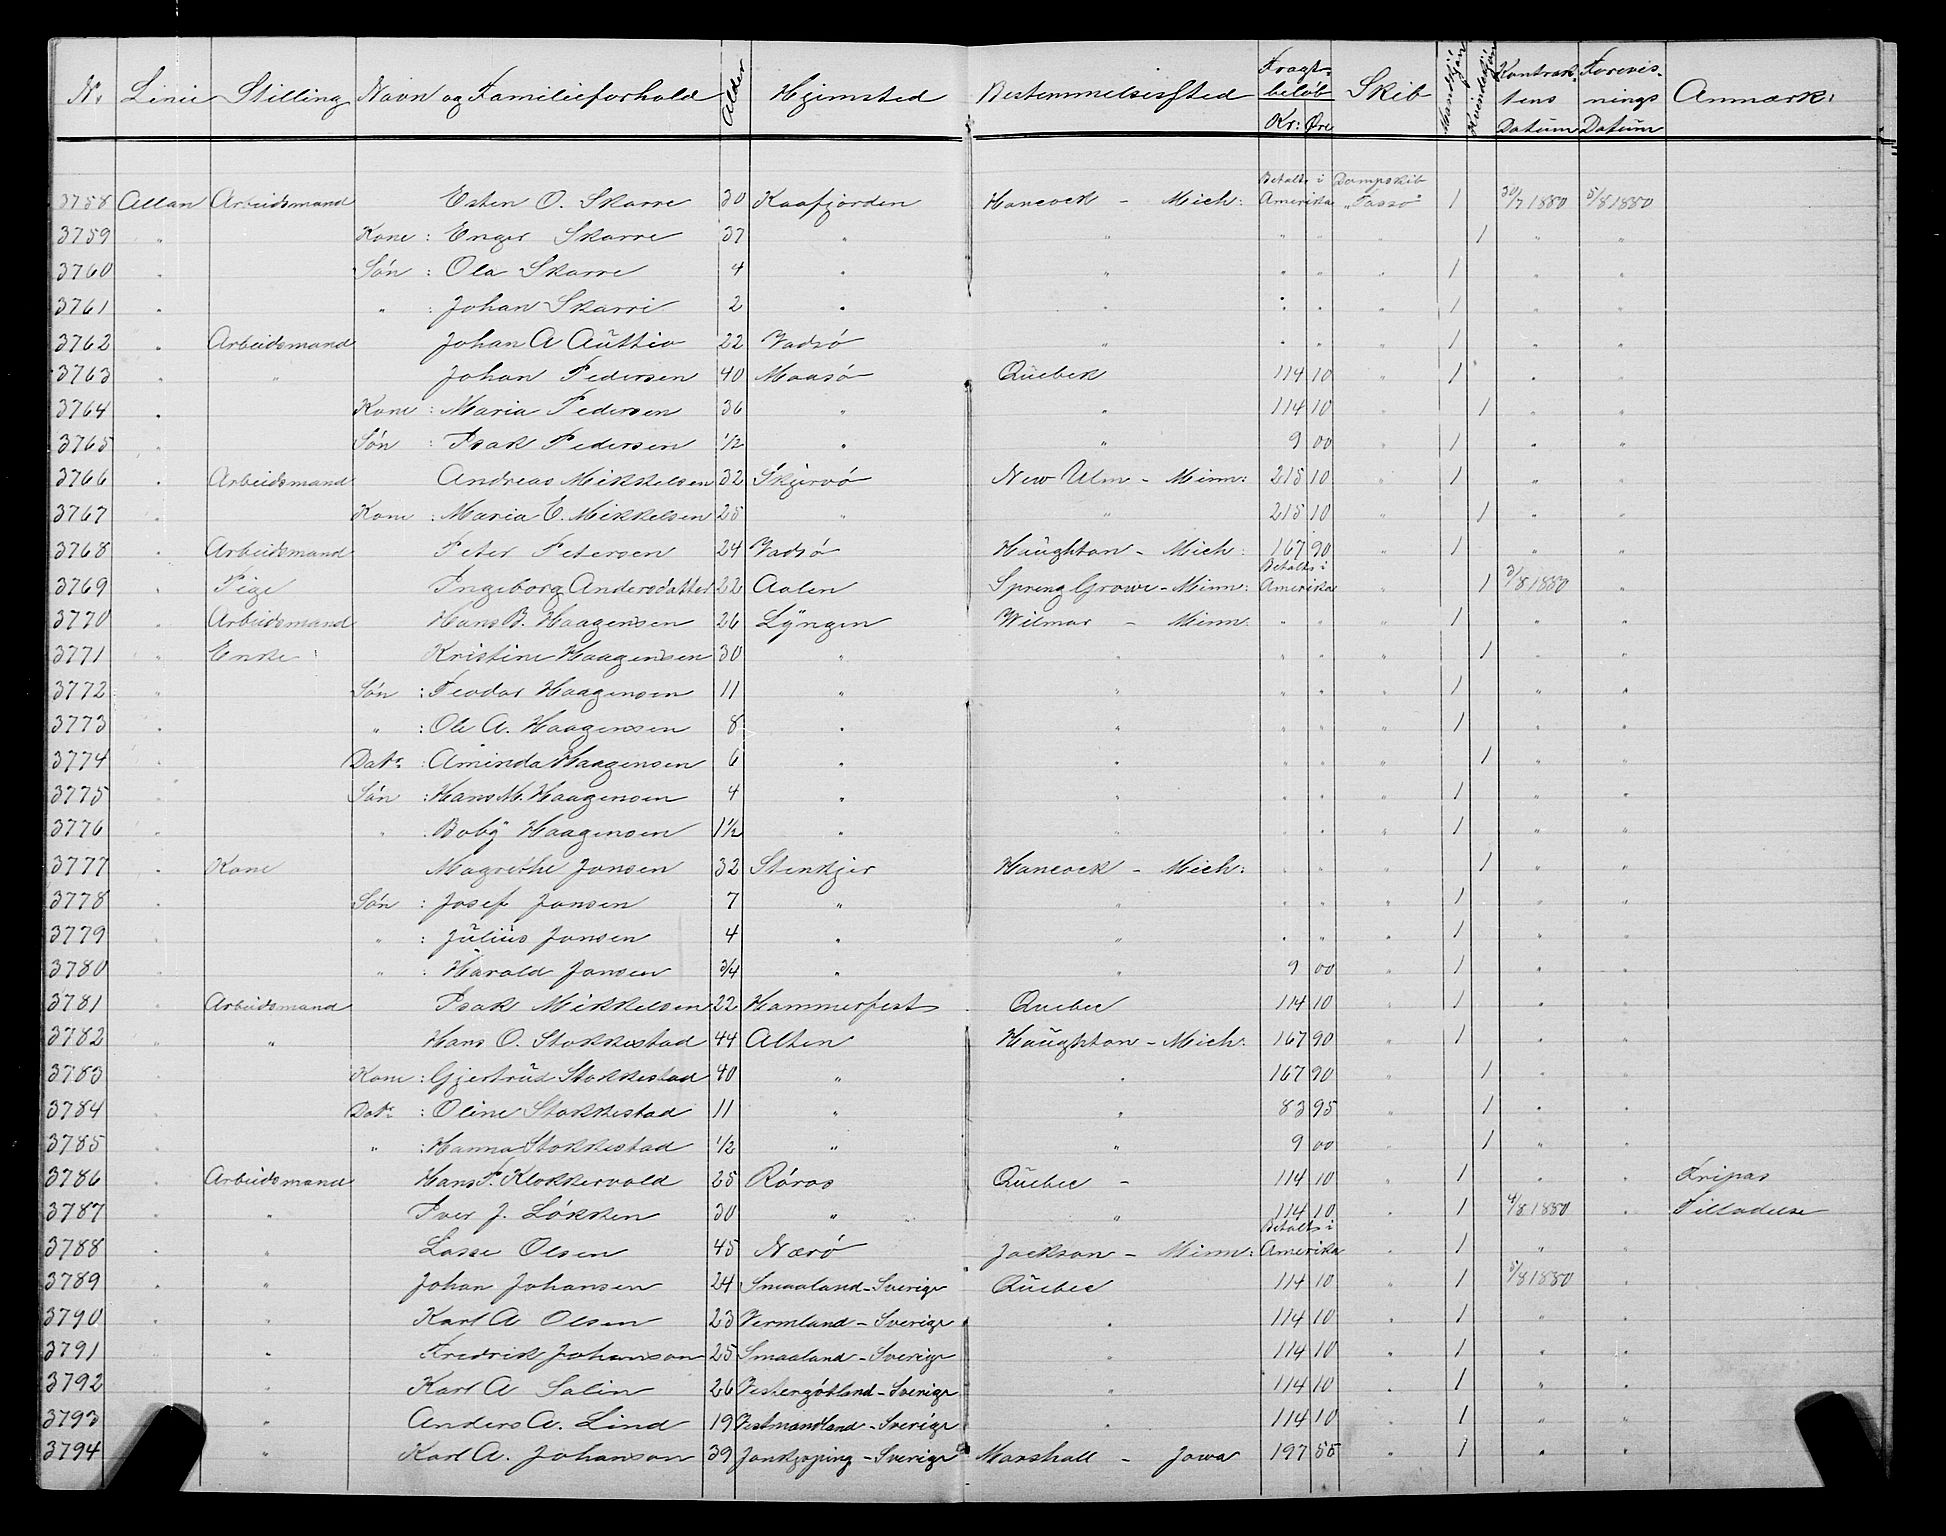 No. Linie Stilling Navn og Familieforhold Alder Hjemsted Bestemmelsessted Fragtbeløb Kr: Øre Skib Mandkjøn Kvindekjøn Kontraktens Datum Forevisnings Datum Anmærk:
3758 Allan Arbeidsmand Esten O. Skarre 30 Kaafjorden Hancock - Mich: Betalt i Amerika Dampskib "Tasso" 1 30/7 1880 5/8 1880
3759 " Kone : Enger Skarre 37 " " " " " 1 " "
3760 " Søn : Ola Skarre 4 " " " " " 1 " "
3761 " " : Johan Skarri 2 " " " " " 1 " "
3762 " Arbeidsmand Johan A Aŭttio 22 Vadsø " " " " 1 " "
3763 " " Johan Pedersen 40 Maasø Qŭebek 114 10 " 1 " "
3764 " Kone : Maria Pedersen 36 " " 114 10 " 1 " "
3765 " Søn : Isak Pedersen 1/2 " " 9 00 " 1 " "
3766 " Arbeidsmand Andreas Mikkelsen 32 Skjervø New Ulm - Minn: 215 10 " 1 " "
3767 " Kone : Maria E. Mikkelsen 25 " " 215 10 " 1 " "
3768 " Arbeidsmand Peter Petersen 24 Vadsø Haŭghton - Mich: 167 90 " 1 " "
3769 " Pige Ingeborg Andersdatter 22 Aalen Spreng Growe - Minn: Betalts i Amerika " 1 3/8 1880 "
3770 " Arbeidsmand Hans B. Haagensen 26 Lyngen Wilmar - Minn: " " " 1 " "
3771 " Enke : Kristine Haagensen 30 " " " " " 1 " "
3772 " Søn : Teodor Haagensen 11 " " " " " 1 " "
3773 " " : Ole A. Haagensen 8 " " " " " 1 " "
3774 " Datr : Aminda Haagensen 6 " " " " " 1 " "
3775 " Søn : Hans M. Haagensen 4 " " " " " 1 " "
3776 " " : Boby Haagensen 1 1/2 " " " " " 1 " "
3777 " Kone Magrethe Jansen 32 Stenkjer Hancock - Mich: " " " 1 " "
3778 " Søn : Josef Jansen 7 " " " " " 1 " "
3779 " " : Jŭliŭs Jansen 4 " " " " " 1 " "
3780 " " : Harald Jansen 3/4 " " 9 00 " 1 " "
3781 " Arbeidsmand Isak Mikkelsen 22 Hammerfest Quebec 114 10 " 1 " "
3782 " " Hans O. Stokkestad 44 Alten Haŭghton - Mich: 167 90 " 1 " "
3783 " Kone : Gjertrŭd Stokkestad 40 " " 167 90 " 1 " "
3784 " Datr : Oline Stokkestad 11 " " 83 95 " 1 " "
3785 " " : Hanna Stokkestad 1/2 " " 9 00 " 1 " "
3786 " Arbeidsmand Hans P. Klokkervold 25 Røros Qŭebec - 114 10 " 1 " " Fripas
3787 " " Iver J. Løkken 30 " " 114 10 " 1 4/8 1880 " Tilladelse
3788 " " Lasse Olsen 45 Nærø Jackson - Minn: Betalts i Amerika " 1 " "
3789 " " Johan Johansen 24 Smaaland - Sverige Qŭebec 114 10 " 1 5/8 1880 "
3790 " " Karl A Olsen 23 Vermland - Sverige " 114 10 " 1 " "
3791 " " Fredrik Johanson 25 Smaaland - Sverige " 114 10 " 1 " "
3792 " " Karl A Salin 26 Vestergøtland - Sverige " 114 10 " 1 " "
3793 " " Anders A. Lind 19 Vestmandland - Sverige " 114 10 " 1 " "
3794 " " Karl A. Johanson 39 Jonkjøping - Sverige Marshall - Jowa 197 55 " 1 " "